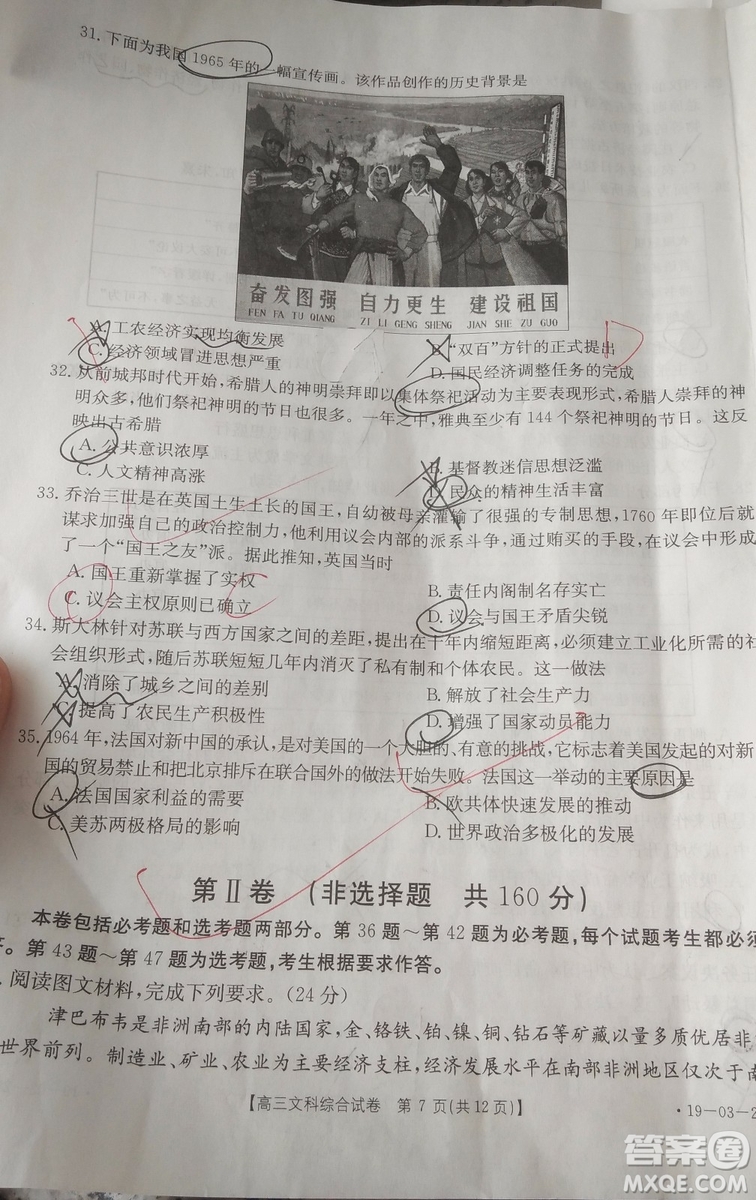 31. 下面为我国1965年的一幅宣传画。该作品创作的历史背景是
奋发图强 自力更生 建设祖国
FEN FA TU QIANG ZI LI GENG SHENG JIAN SHE ZU GUO
A. 工农经济实现均衡发展 B. “双百”方针的正式提出 D
C. 经济领域冒进思想严重 D. 国民经济调整任务的完成
32. 从前城邦时代开始，希腊人的神明崇拜即以集体祭祀活动为主要表现形式，希腊人崇拜的神
明众多，他们祭祀神明的节日也很多。一年之中，雅典至少有144个祭祀神明的节日。这反
映出古希腊
A. 公共意识浓厚 B. 基督教迷信思想泛滥
C. 人文精神高涨 D. 民众的精神生活丰富
33. 乔治三世是在英国土生土长的国王，自幼被母亲灌输了很强的专制思想，1760年即位后就
谋求加强自己的政治控制力，他利用议会内部的派系斗争，通过贿买的手段，在议会中形成
了一个“国王之友”派。据此推知，英国当时
A. 国王重新掌握了实权 B. 责任内阁制名存实亡
C. 议会主权原则已确立 C D. 议会与国王矛盾尖锐
34. 斯大林针对苏联与西方国家之间的差距，提出在十年内缩短距离，必须建立工业化所需的社
会组织形式，随后苏联短短几年内消灭了私有制和个体农民。这一做法
A. 消除了城乡之间的差别 B. 解放了社会生产力
C. 提高了农民生产积极性 D. 增强了国家动员能力
35. 1964年，法国对新中国的承认，是对美国的一个大胆的、有意的挑战，它标志着美国发起的对新
国的贸易禁止和把北京排斥在联合国外的做法开始失败。法国这一举动的主要原因是
A. 法国国家利益的需要 B. 欧共体快速发展的推动
C. 美苏两极格局的影响 D. 世界政治多极化的发展
第Ⅱ卷 （非选择题 共160分）
本卷包括必考题和选考题两部分。第36题～第42题为必考题，每个试题考生都必须
答。第43题～第47题为选考题，考生根据要求作答。
. 阅读图文材料，完成下列要求。（24分）
津巴布韦是非洲南部的内陆国家，金、铬铁、铂、镍、铜、钻石等矿藏以量多质优居非
世界前列。制造业、矿业、农业为主要经济支柱，经济发展水平在南部非洲地区仅次于南
【高三文科综合试卷 第7页（共12页）】 ·19-03-2
答案圈
MXQE.COM